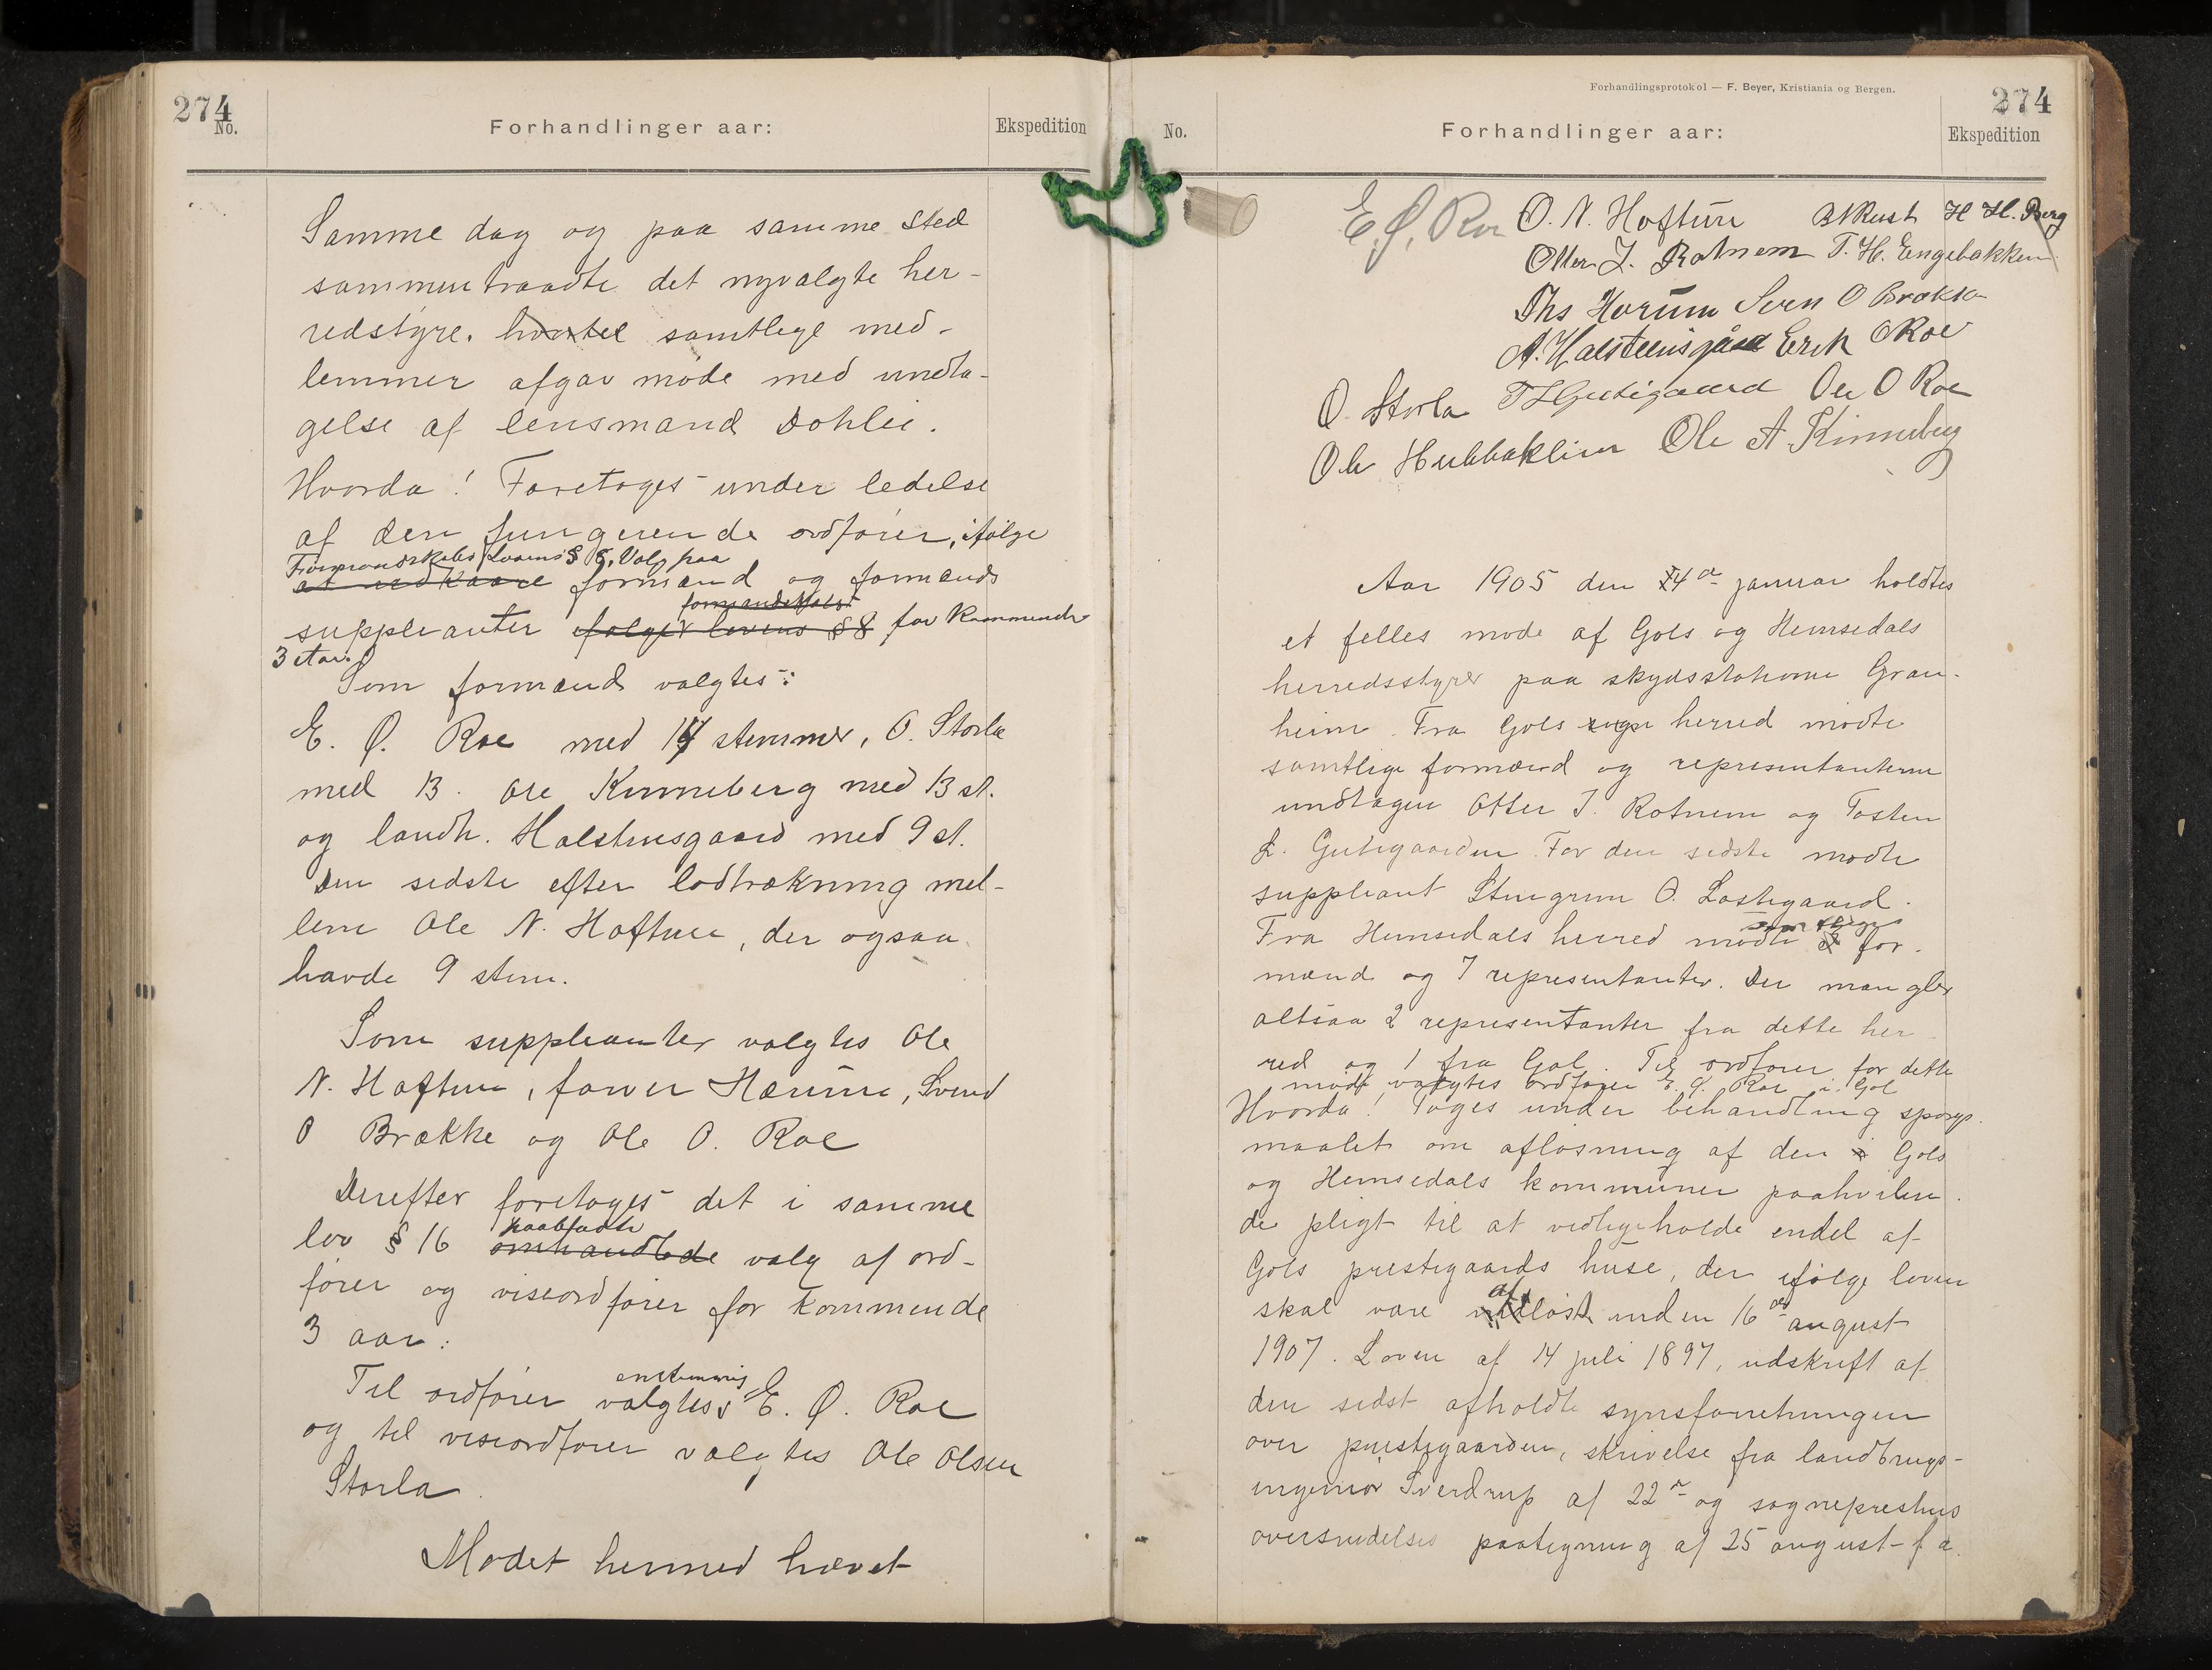 274
No.
Forhandlinger aar:
Ekspedition
Samme dag og paa samme sted
sammentraadte det nyvalgte her-
redstyre. hvortil samtlige med-
lemmer afgav møde med undta-
gelse af lensmand Dohlie.
Hvorda! Foretoges under ledelse
af den fungerende ordfører, ifølge
Formandskabslovens § 8, Valg paa
at udkaare formænd og formænds
formandskabs
suppleanter følger lovens § 8 for kommende
3 aar.
Som formænd valgtes:
E. Ø. Roe med 14 stemmer, O. Storla
med 13. Ole Kinneberg med 13 st.
og landh. Halstensgaard med 9 st.
Den sidste efter lodtrækning mel-
lem Ole N. Hoftun, der ogsaa
havde 9 stem.
Som suppleanter valgtes Ole
N. Hoftun, farver Hærum, Svend
O Brække og Ole O. Roe
Derefter foretoges det i samme
paabudte
lov § 16 omhandlede valg af ord-
fører og viseordfører for kommende
3 aar:
enstemmig
Til ordfører valgtes E. Ø. Roe
og til viseordfører valgtes Ole Olsen
Storla.
Mødet hermed hævet
Forhandlingsprotokol — F. Beyer, Kristiania og Bergen.
274
No.
Forhandlinger aar:
Ekspedition
E. Ø. Roe O. N. Hoftun H. H. Berg
Otter J. Rotnem T. H. Engebakken
Ths Hærum Sven O Brække
A. Halsteinsgård Erik O Roe
O. Storla T L Gutigaard Ole O Roe
Ole Hulbaklien Ole A. Kinneberg
Aar 1905 den 4de januar holdtes
et felles møde af Gols og Hemsedals
herredsstyrer paa skydsstationen Gran-
heim. Fra Gols sogn herred mødte
samtlige formænd og representanterne
undtagen Otter J. Rotnem og Tosten
L. Gutegaarden. For den sidste mødte
suppleant Stengrim O. Lostegaard.
samtlige
Fra Hemsedals herred mødte for-
mænd og 7 representanter. Der mangler
altsaa 2 representanter fra dette her
red og 1 fra Gol. Til ordfører for dette
møde valgtes ordfører E. Ø. Roe i Gol
Hvorda! Toges under behandling spørgs-
maalet om afløsning af den i Gols
og Hemsedals kommuner paahvilen-
de pligt til at vedligeholde endel af
Gols prestegaards huse, der ifølge loven
af
skal være indløst inden 16de august
1907. Loven af 14 juli 1897, udskrift af
den sidst afholdte synsforretningen
over prestegaarden, skrivelse fra landbrugs-
ingeniør Sverdrup af 22de og sogneprestens
oversendelses paategning af 25 august f a.